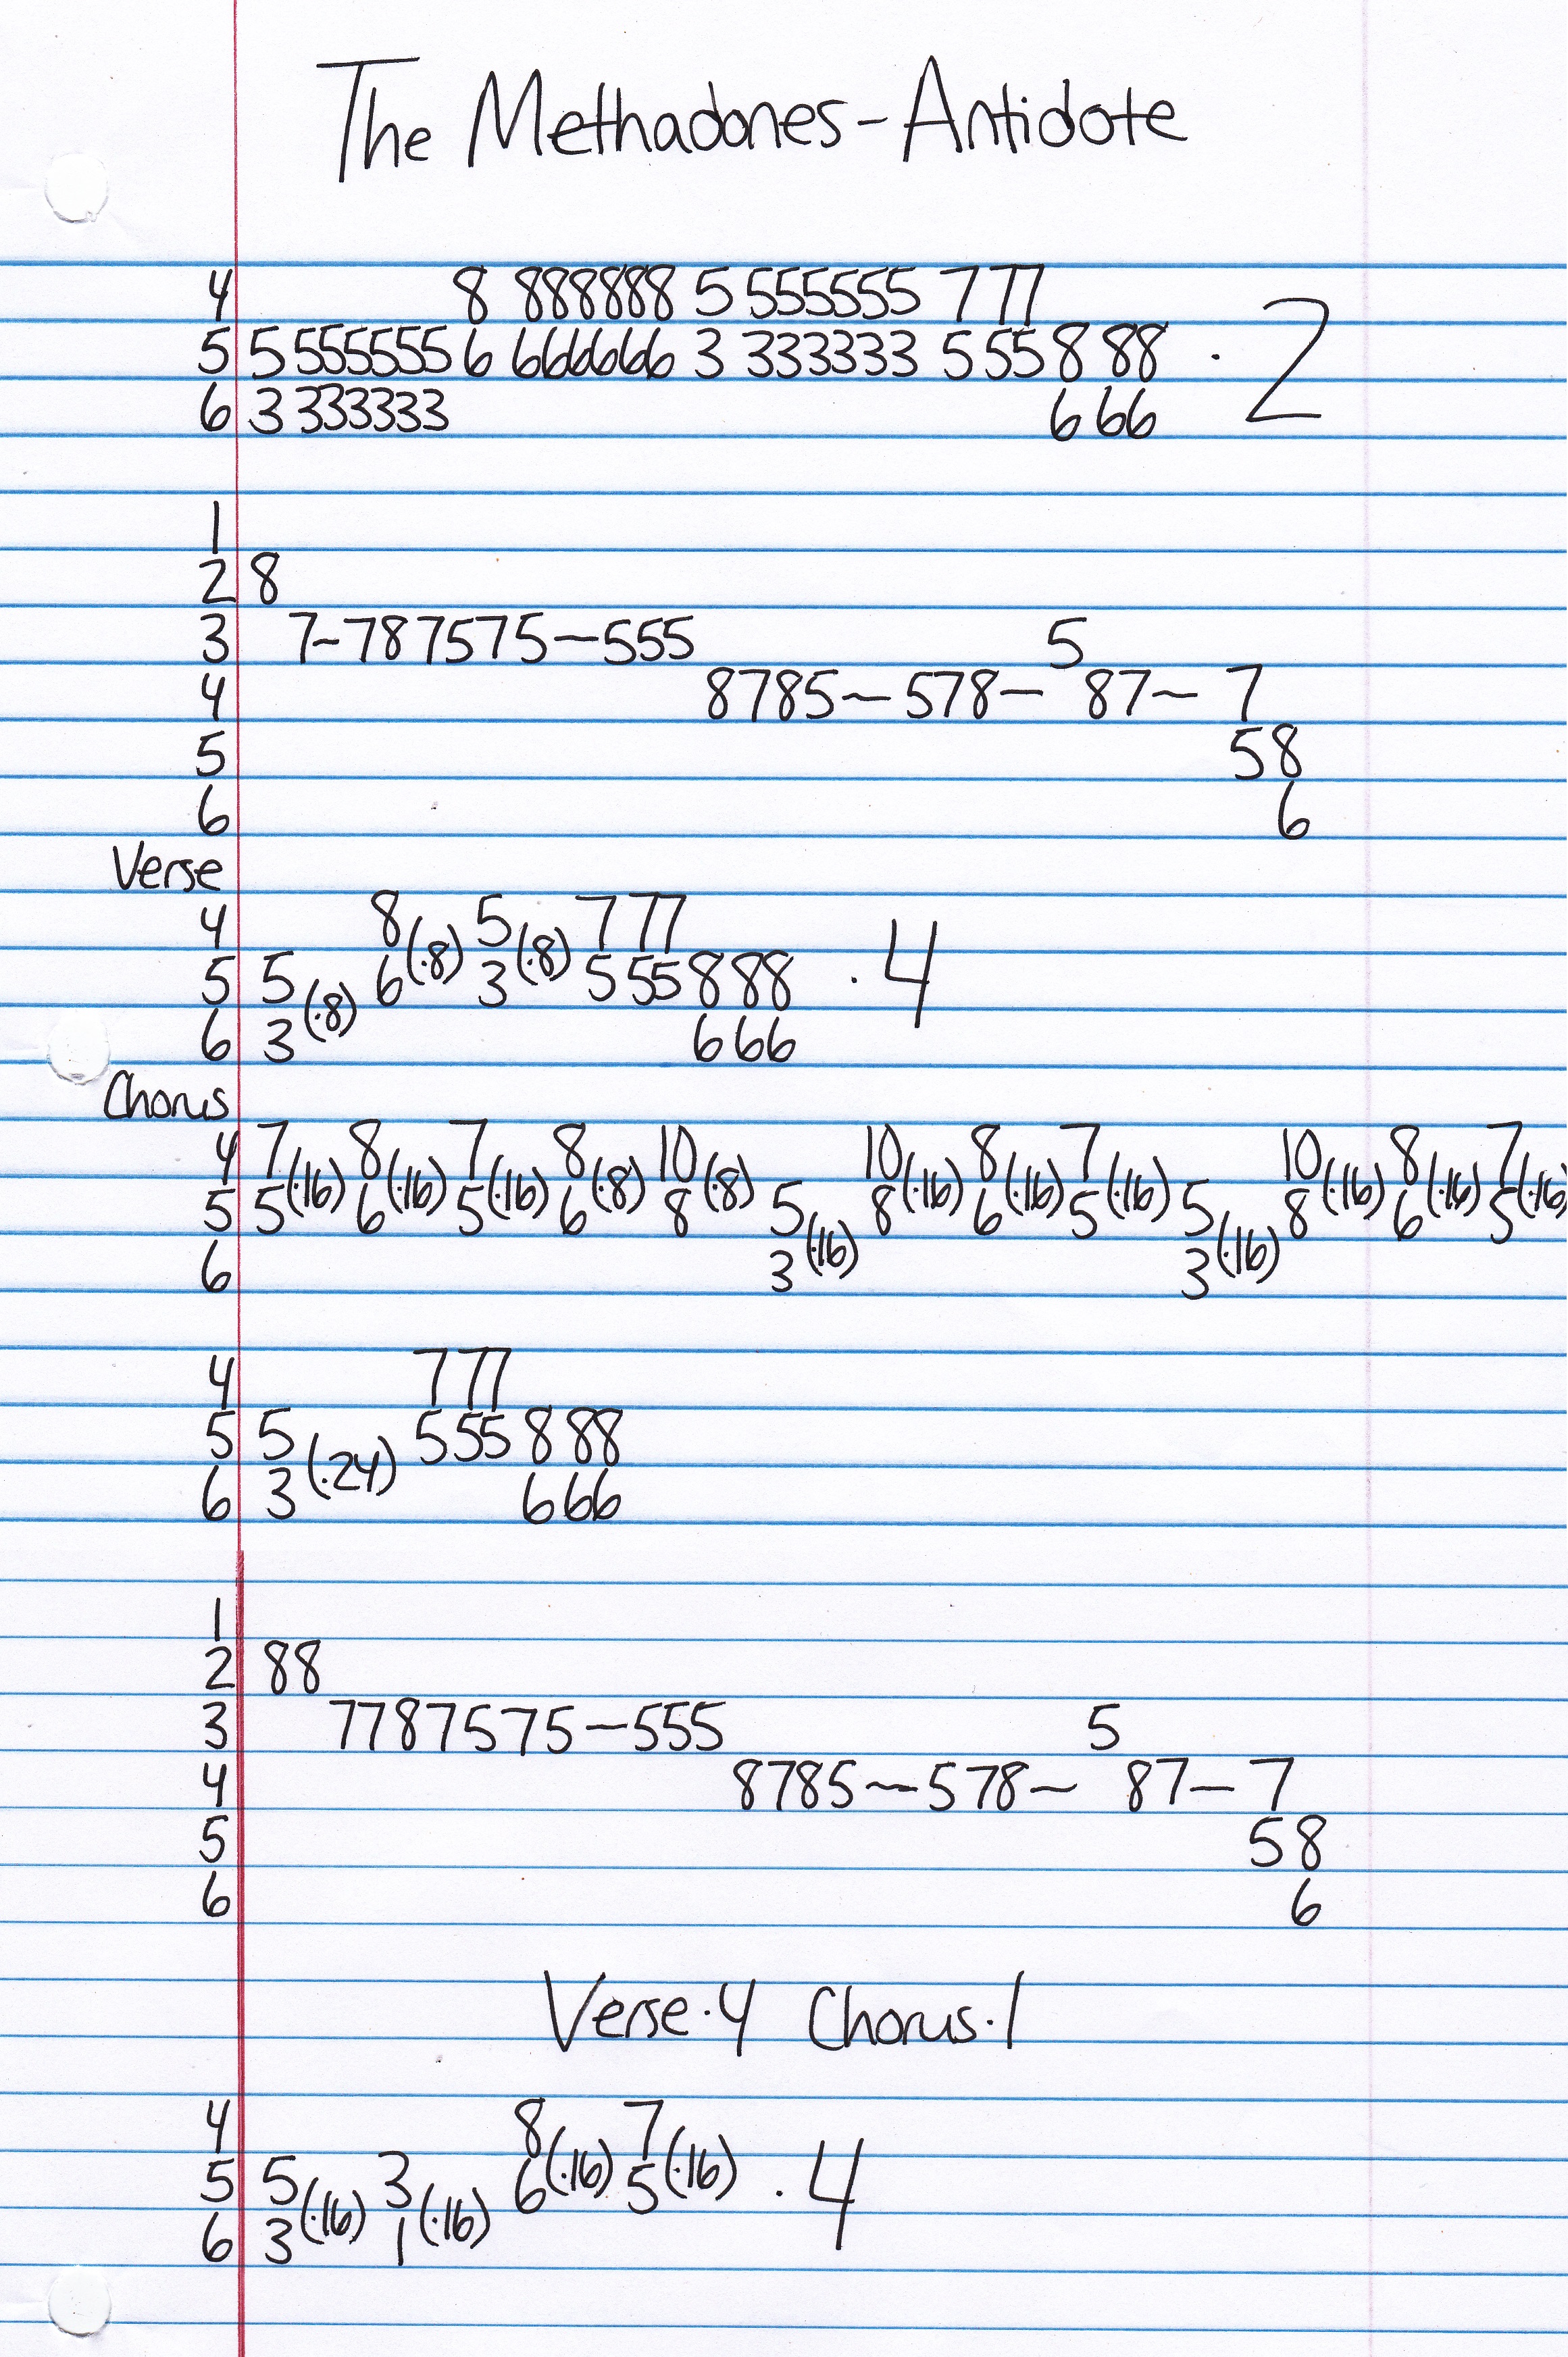 The Methadones - Antidote
4 8 888888 5 555555 7 77
5 5 555555 6 666666 3 333333 5 55 8 88 · 2
6 3 333333 6 66
1
2 8
3 7-787575-555 5
4 8785-578- 87- 7
5 58
6 6
Verse
4 8 5 7 77
5 5 6(·8) 3(·8) 5 55 8 88 · 4
6 3(·8) 6 66
Chorus
4 7 8 7 8 10 10 8 7 10 8 7
5 5(·16) 6(·16) 5(·16) 6(·8) 8(·8) 5 8(·16) 6(·16) 5(·16) 5 8(·16) 6(·16) 5(·16)
6 3(·16) 3(·16)
4 7 77
5 5 5 55 8 88
6 3(·24) 6 66
1
2 88
3 7787575-555 5
4 8785-578- 87-7
5 58
6 6
Verse·4 Chorus·1
4 8 7
5 5 3 6(·16) 5(·16) · 4
6 3(·16) 1(·16)